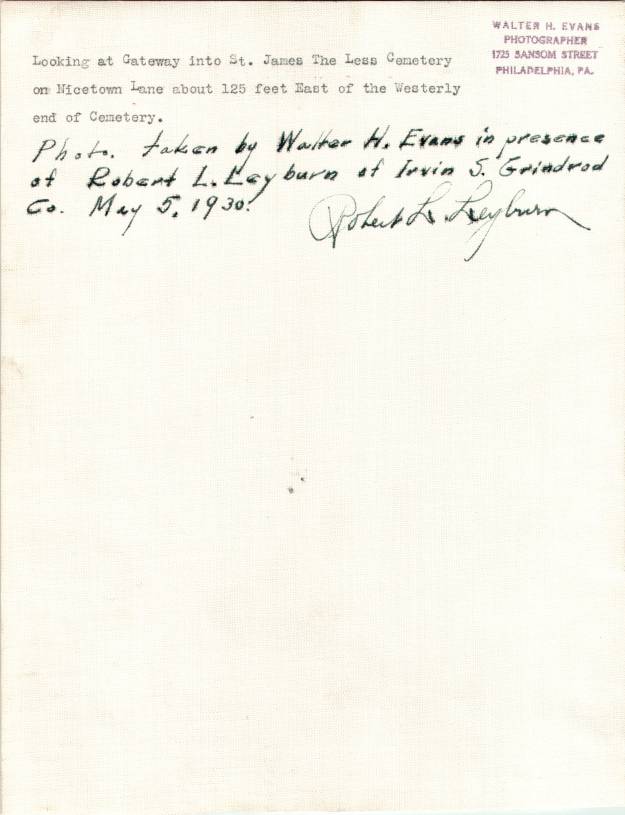 WALTER H. EVANS
PHOTOGRAPHER
1725 SANSOM STREET
PHILADELPHIA, PA.
Looking at Gateway into St. James The Less Cemetery
on Nicetown Lane about 125 feet East of the Westerly
end of Cemetery.
Photo. taken by Walter H. Evans in presence
of Robert L. Leyburn of Irvin S. Grindrod
Co. May 5, 1930.
Robert L. Leyburn